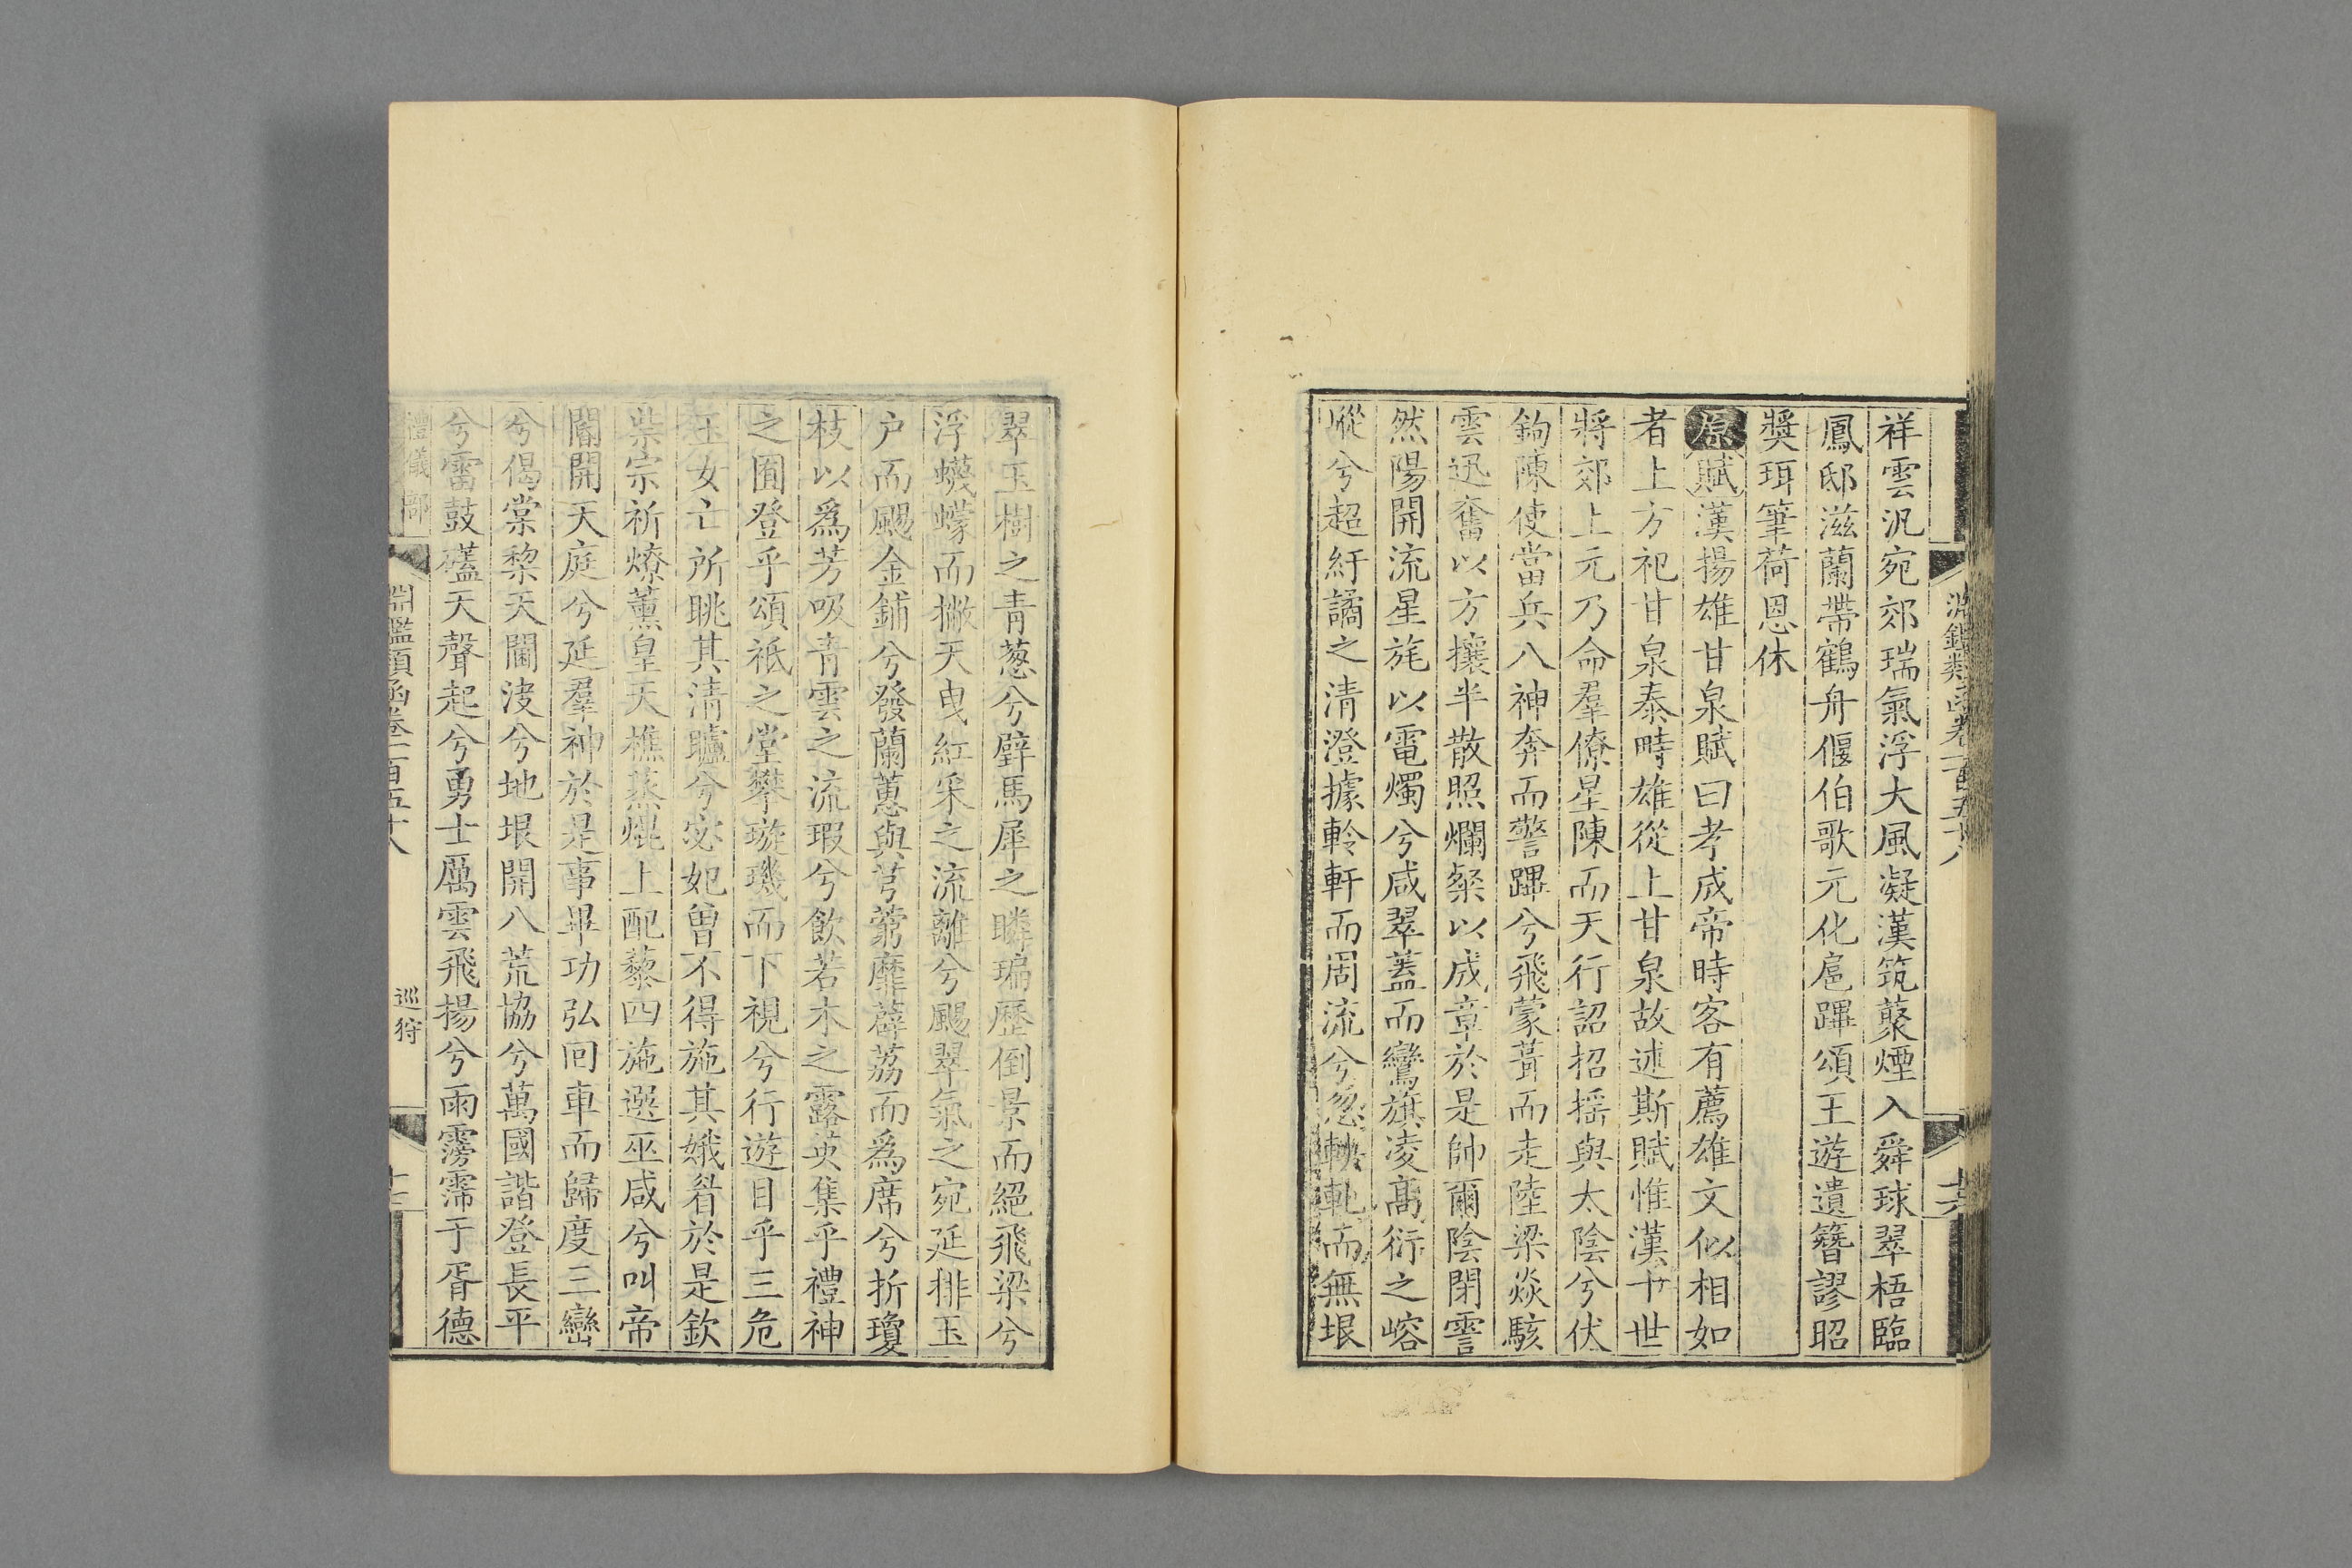 祥雲汎宛郊瑞氣浮大風凝漢筑藂煙入舜球翠梧臨
鳳邸滋蘭帶鶴舟偃伯歌元化扈蹕頌王遊遺簪謬昭
獎珥筆荷恩休
原賦漢揚雄甘泉賦曰孝成帝時客有薦雄文似相如
者上方祀甘泉泰畤雄從上甘泉故述斯賦惟漢十世
將郊上元乃命羣僚星陳而天行詔招搖與太陰兮伏
鉤陳使當兵八神奔而警蹕兮飛蒙茸而走陸梁焱駭
雲迅奮以方攘半散照爛粲以成章於是帥爾陰閉霅
然陽開流星旄以電燭兮咸翠蓋而鸞旗凌高衍之嵱
嵷兮超紆譎之清澄據軨軒而周流兮忽軮軋而無垠
翠玉樹之青葱兮璧馬犀之瞵㻞歷倒景而絕飛梁兮
浮蠛蠓而撇天曳紅采之流離兮颺翠氣之宛延排玉
户而颺金鋪兮發蘭蕙與芎藭靡薜荔而爲席兮折瓊
枝以爲芳吸青雲之流瑕兮飲若木之露英集乎禮神
之囿登乎頌祇之堂攀璇璣而下視兮行遊目乎三危
玉女亡所眺其清矑兮宓妃曾不得施其娥眉於是欽
柴宗祈燎薰皇天樵蒸焜上配藜四施選巫咸兮叫帝
閽開天庭兮延羣神於是事畢功弘囘車而歸度三巒
兮偈棠黎天閫決兮地垠開八荒協兮萬國諧登長平
兮雷鼓礚天聲起兮勇士厲雲飛揚兮雨霶霈于胥德
禮儀部
淵鑑類函卷一百五十八
巡狩